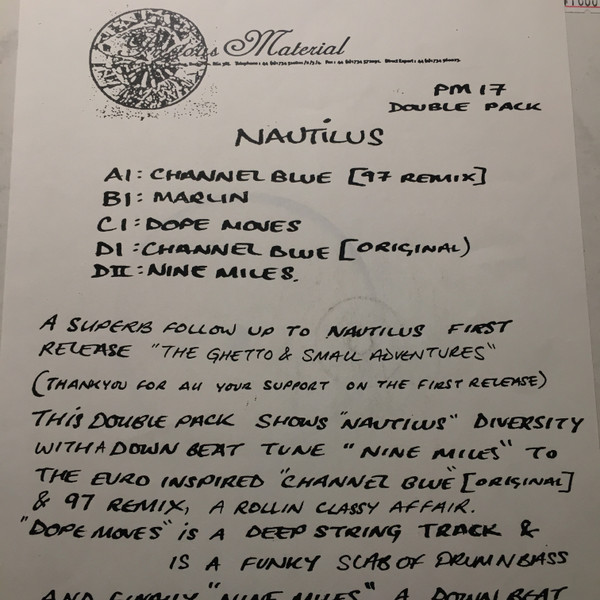 Material
PM 17
DOUBLE PACK
NAUTILUS
A1: CHANNEL BLUE [97 REMIX]
B1: MARLIN
C1: DOPE MOVES
D1: CHANNEL BLUE [ORIGINAL)
DII: NINE MILES.
A SUPERB FOLLOW UP TO NAUTILUS FIRST
RELEASE "THE GHETTO & SMALL ADVENTURES"
(THANKYOU FOR ALL YOUR SUPPORT ON THE FIRST RELEASE)
THIS DOUBLE PACK SHOWS "NAUTILUS" DIVERSITY
WITH A DOWN BEAT TUNE "NINE MILES" TO
THE EURO INSPIRED "CHANNEL BLUE" [ORIGINAL]
& 97 REMIX, A ROLLIN CLASSY AFFAIR.
"DOPE MOVES" IS A DEEP STRING TRACK &
IS A FUNKY SLAB OF DRUM N BASS
AND FINALLY "NINE MILES" A DOWN BEAT